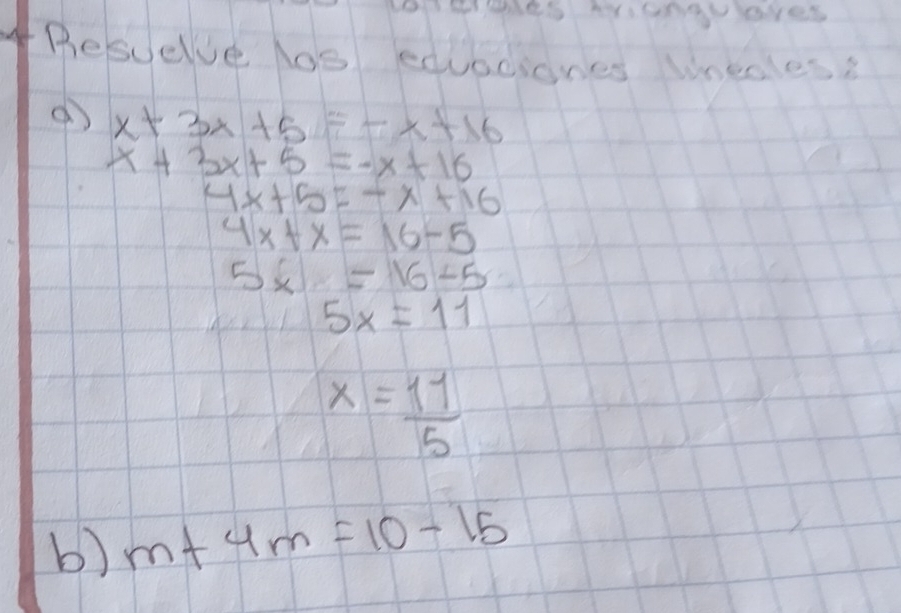 triangulares
Resuelve las ecuaciones lineales:
a) x + 3x + 5 = -x + 16
x + 3x + 5 = -x + 16
4x + 5 = -x + 16
4x + x = 16 - 5
5x = 16 - 5
5x = 11
x = 11/5
b) m + 4m = 10 - 15